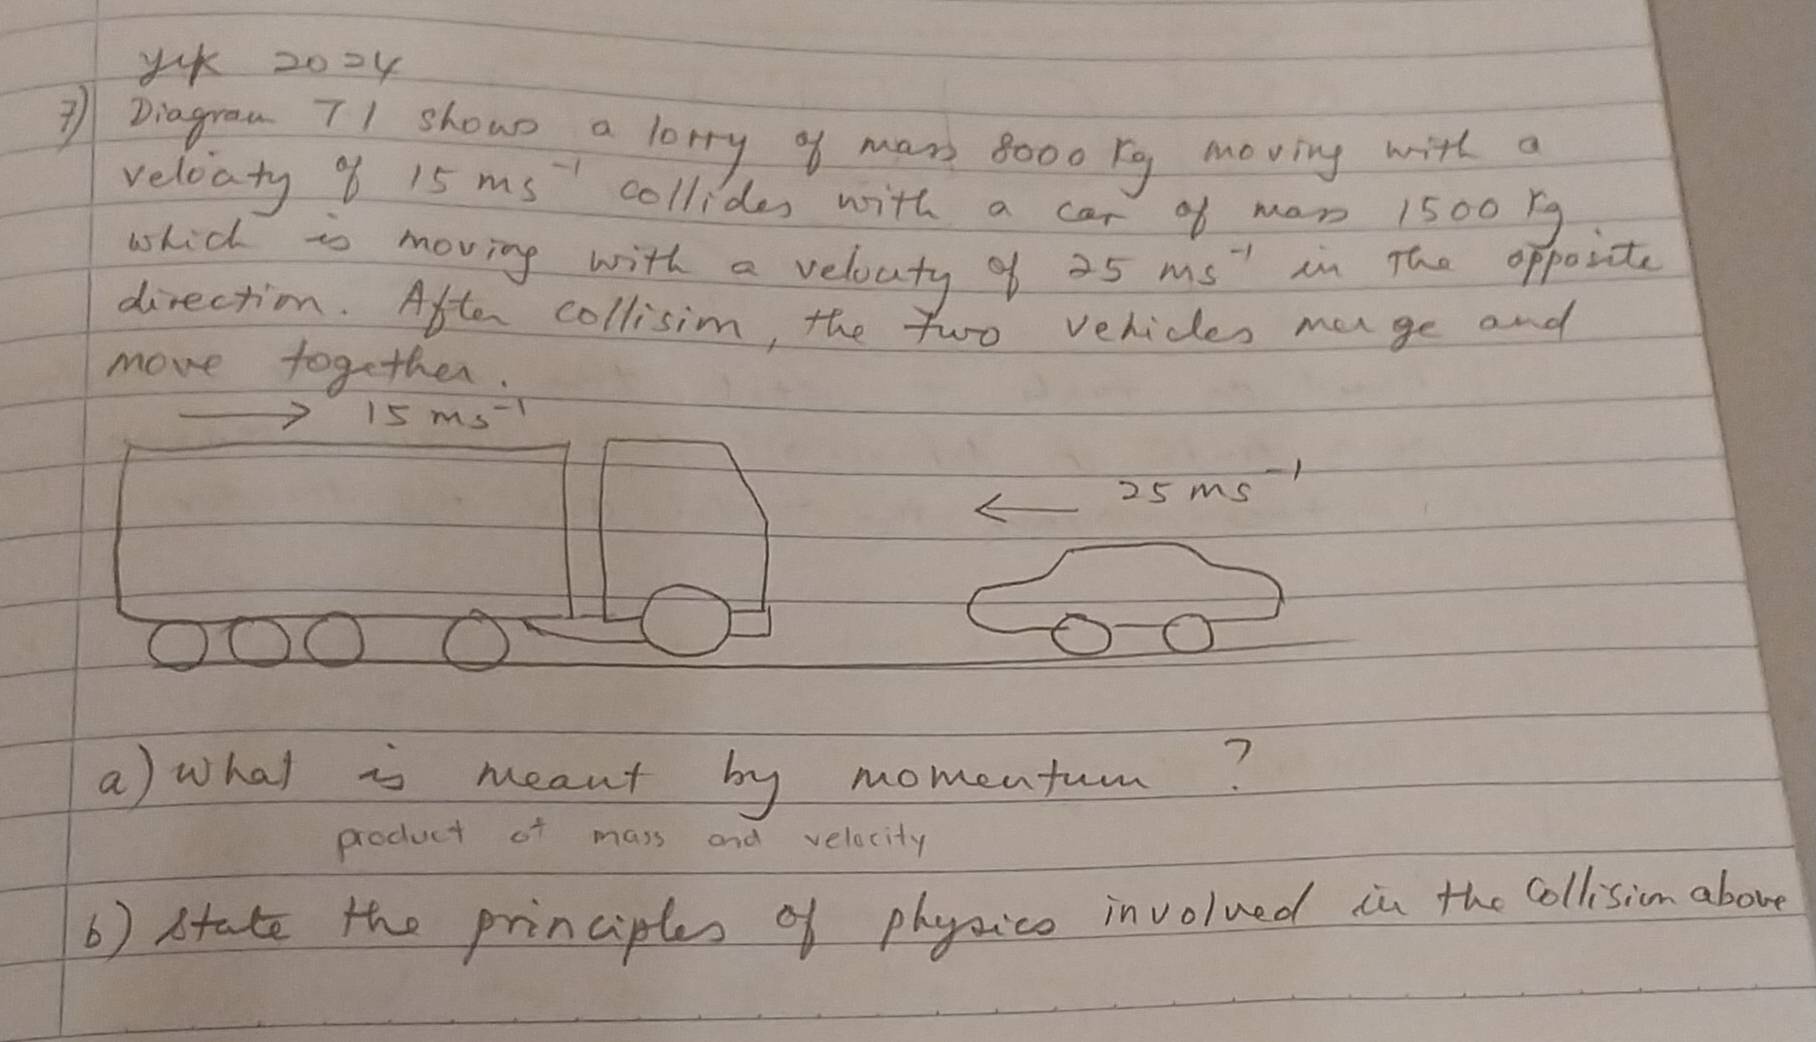 yik 2024
7) Diagram 7 1 shows a lorry of mass 8000 kg moving with a
velocity of 15 ms⁻¹ collides with a car of mass 1500 kg
which is moving with a velocity of 25 ms⁻¹ in the opposite
direction. After collision, the two vehicles merge and
move together.
→ 15 ms⁻¹
← 25 ms⁻¹
a) what is meant by momentum ?
product of mass and velocity
b) state the principles of physics involved in the collision above